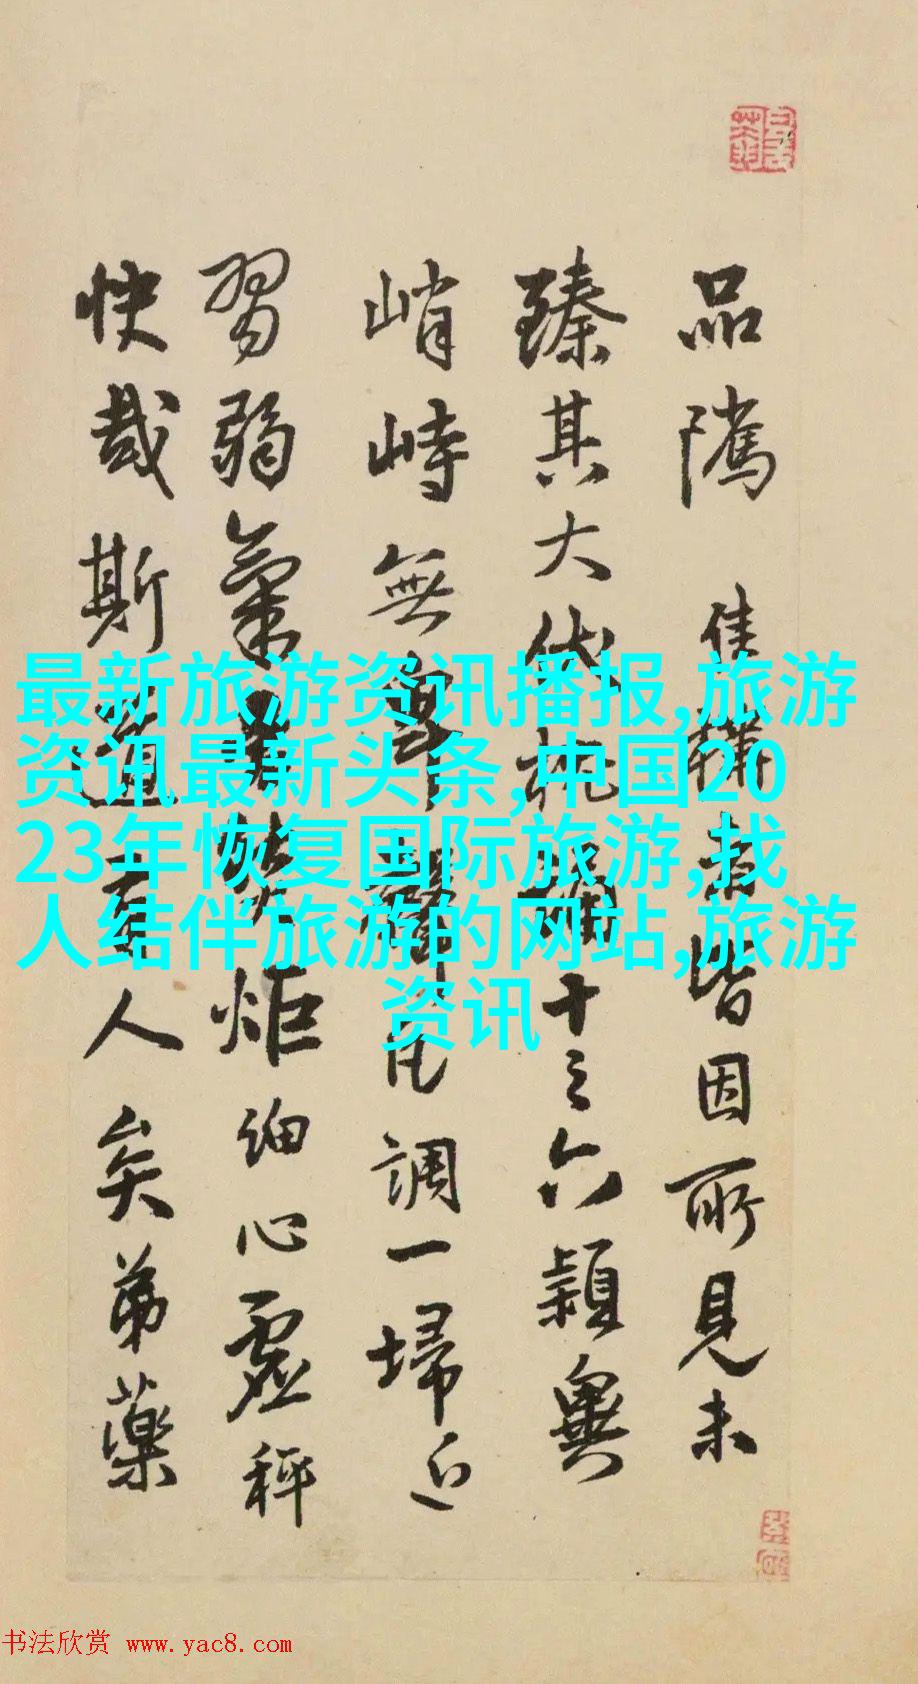 品隲皆因所見未
臻其大十之六穎
峭峙無調一埽近
習弱氣炬細心虛秤
快哉斯道人矣弟藥
最新旅游资讯播报,旅游
资讯最新头条,中国20
23年恢复国际旅游,找
人结伴旅游的网站,旅游
资讯
书法欣赏 www.yac8.com